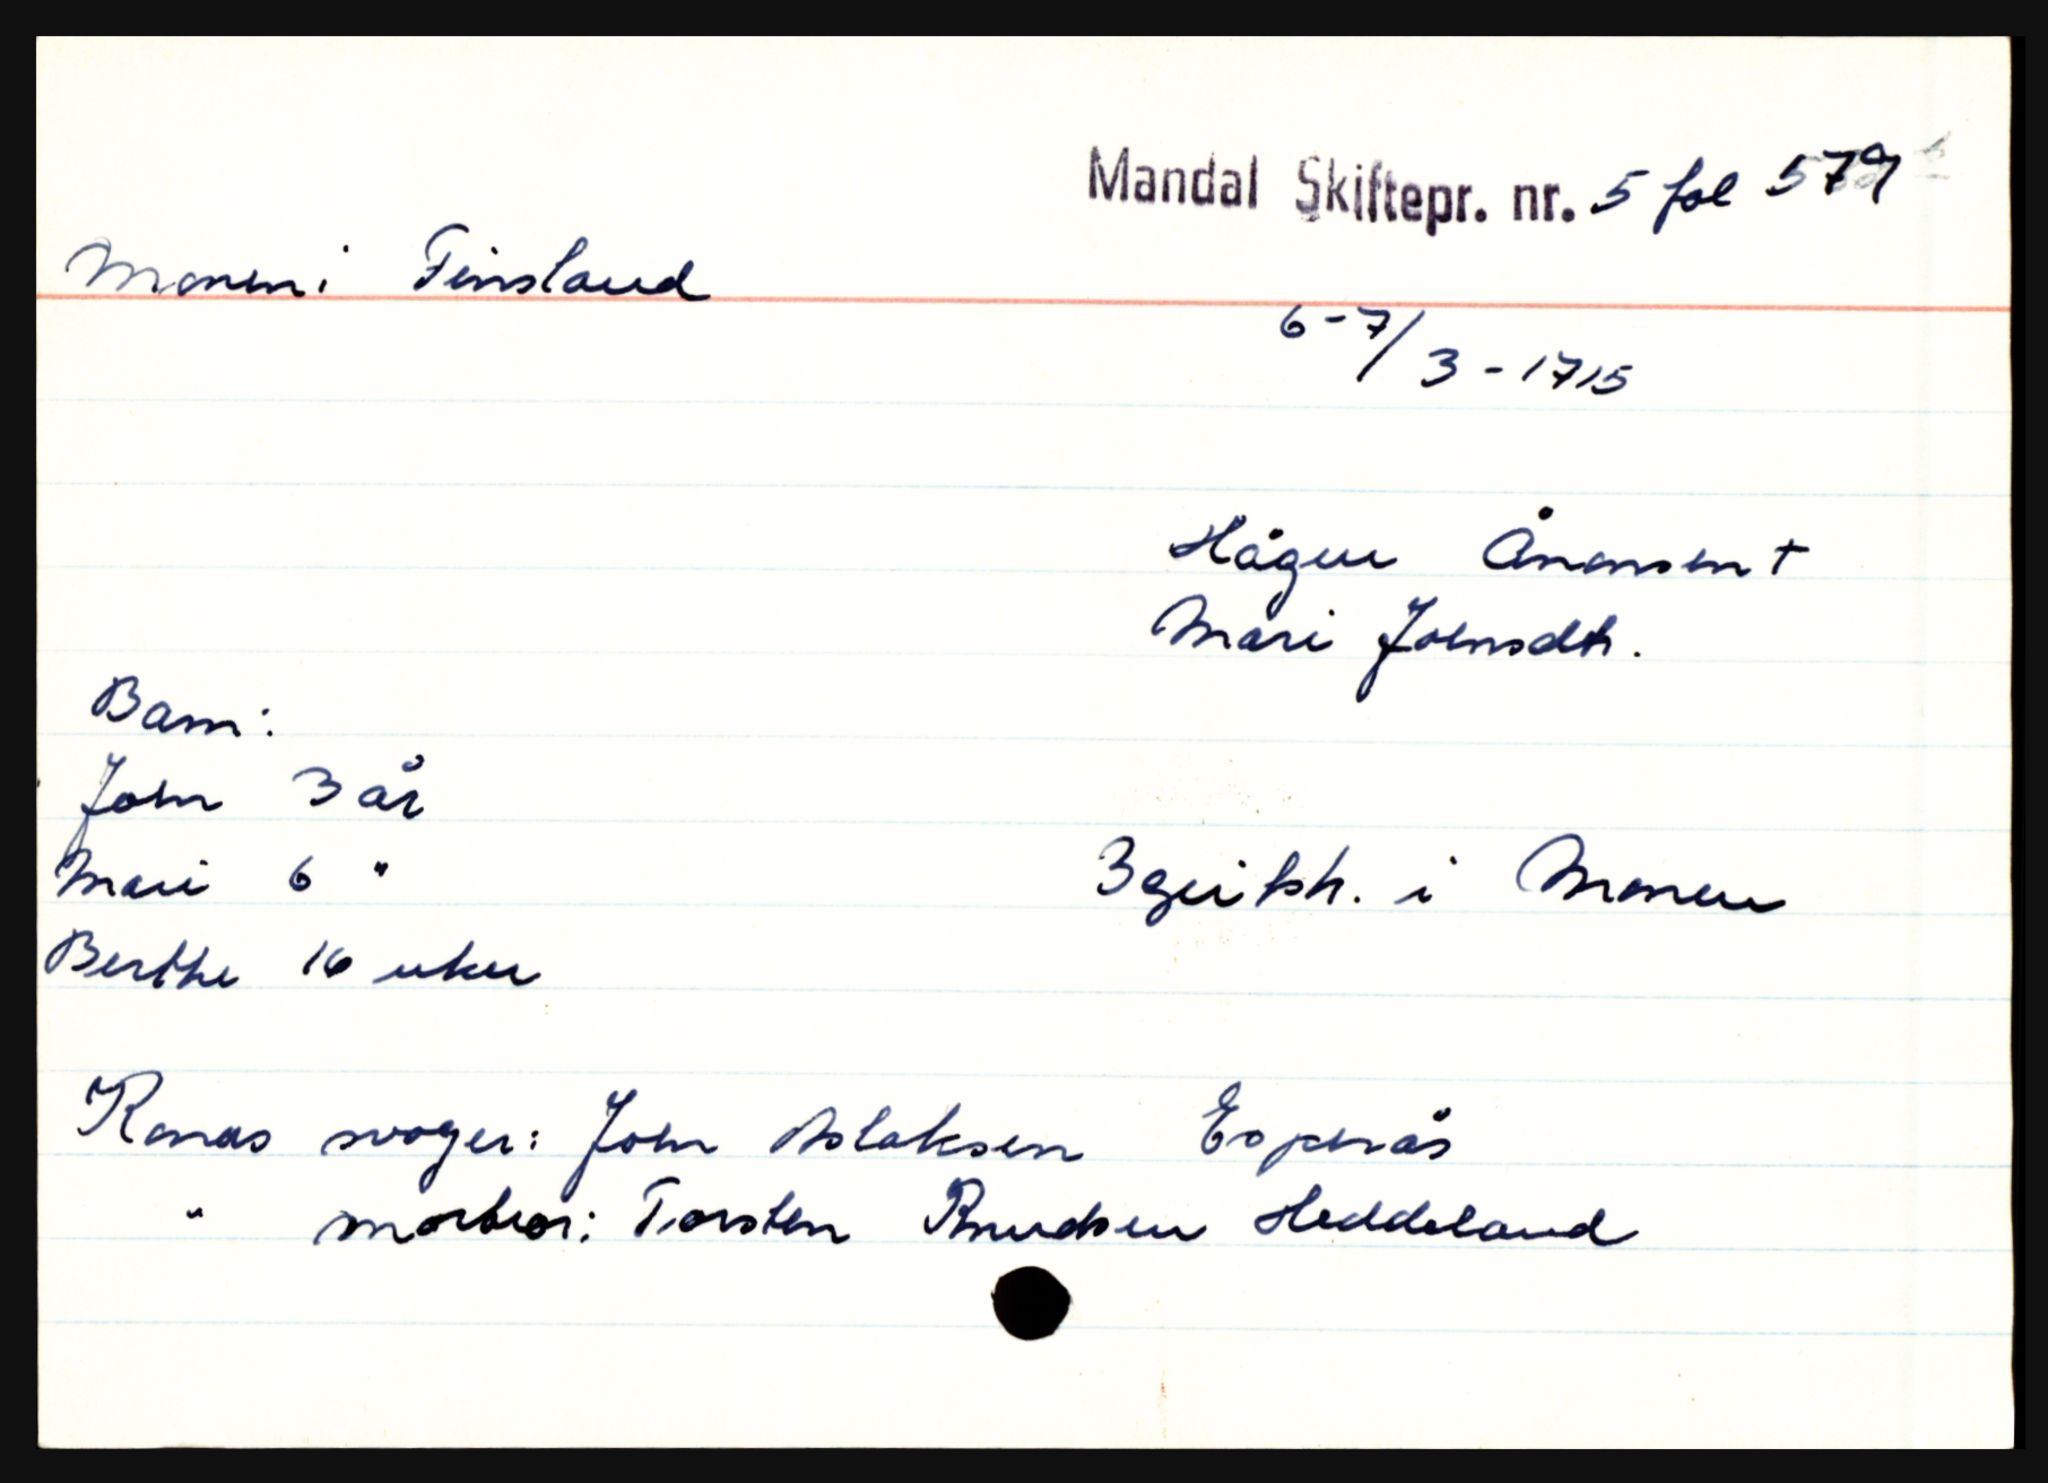 Mandal Skiftepr. nr. 5 fol 579
Monen i Finsland
6-7/3 - 1715
Hågen Ånonsen +
Mari Johnsdtr.
Barn:
John 3 år
Mari 6 "
3 geitsk. i Monen
Berthe 16 uker
Konas svoger: John Aslaksen Espeås
" morbror: Torsten Knudsen Heddeland